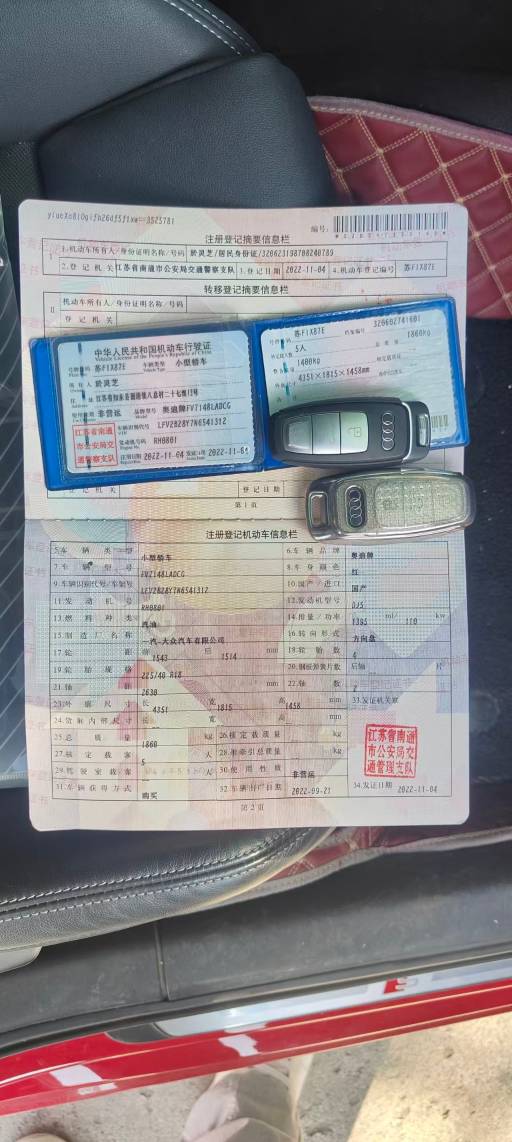 yiueXo8i0gifh26df5fixw==3525781
编号:
注册登记摘要信息栏
1.机动车所有人/身份证明名称/号码 於灵芝/居民身份证/320623198708240789
2.登记机关 江苏省南通市公安局交通警察支队 3.登记日期 2022-11-04 4.机动车登记编号 苏F1X87E
转移登记摘要信息栏
Ⅱ 机动车所有人/身份证明名称/号码
登记机关
中华人民共和国机动车行驶证
Vehicle License of the People's Republic of China
号牌号码 苏F1X87E 车辆类型 小型轿车
所有人 於灵芝
使用性质 非营运 品牌型号 奥迪牌FV7148LADCG
江苏省南通
市公安局交
通警察支队
车辆识别代号 LFV2B28Y7N6541312
发动机号码 RH0801
注册日期 2022-11-04 发证日期
号牌号码 苏F1X87E 档案编号 320602741601
5人 1860kg
1400kg
4351×1815×1458mm
登记机关 登记日期
第1页
注册登记机动车信息栏
5.车辆类型 小型轿车 6.车辆品牌 奥迪牌
7.车辆型号 FV7148LADCG 8.车身颜色 红
9.车辆识别代号/车架号 LFV2B28Y7N6541312 10.国产/进口 国产
11.发动机号 RH0801 12.发动机型号 DJS
13.燃料种类 汽油 14.排量/功率 1395 ml/ 110 kw
15.制造厂名称 一汽-大众汽车有限公司 16.转向形式 方向盘
17.轮距 前 1543 后 1514 mm 18.轮胎数 4
19.轮胎规格 225/40 R18 20.钢板弹簧片数 后轴 片
21.轴距 2630 mm 22.轴数 2
23.外廓尺寸 长 4351 宽 1815 高 1458 mm 33.发证机关章
24.货厢内部尺寸 长 宽 高 mm
25.总质量 1860 kg 26.核定载质量 kg
27.核定载客 5 人 28.准牵引总质量 kg
29.驾驶室载客 人 30.使用性质 非营运
31.车辆获得方式 购买 32.车辆出厂日期 2022-09-21
江苏省南通
市公安局交
通管理支队
34.发证日期 2022-11-04
第2页